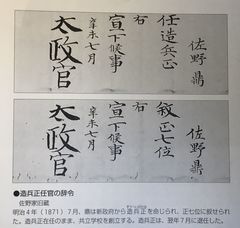 佐野鼎
任造兵正
右
宣下候事
辛未七月
太政官
佐野鼎
叙正七位
右
宣下候事
辛未七月
太政官
●造兵正任官の辞令
佐野家旧蔵
明治4年(1871)7月、鼎は新政府から造兵正を命じられ、正七位に叙せられ
た。造兵正在任のまま、共立学校を創立する。造兵正は、翌年7月に退任した。